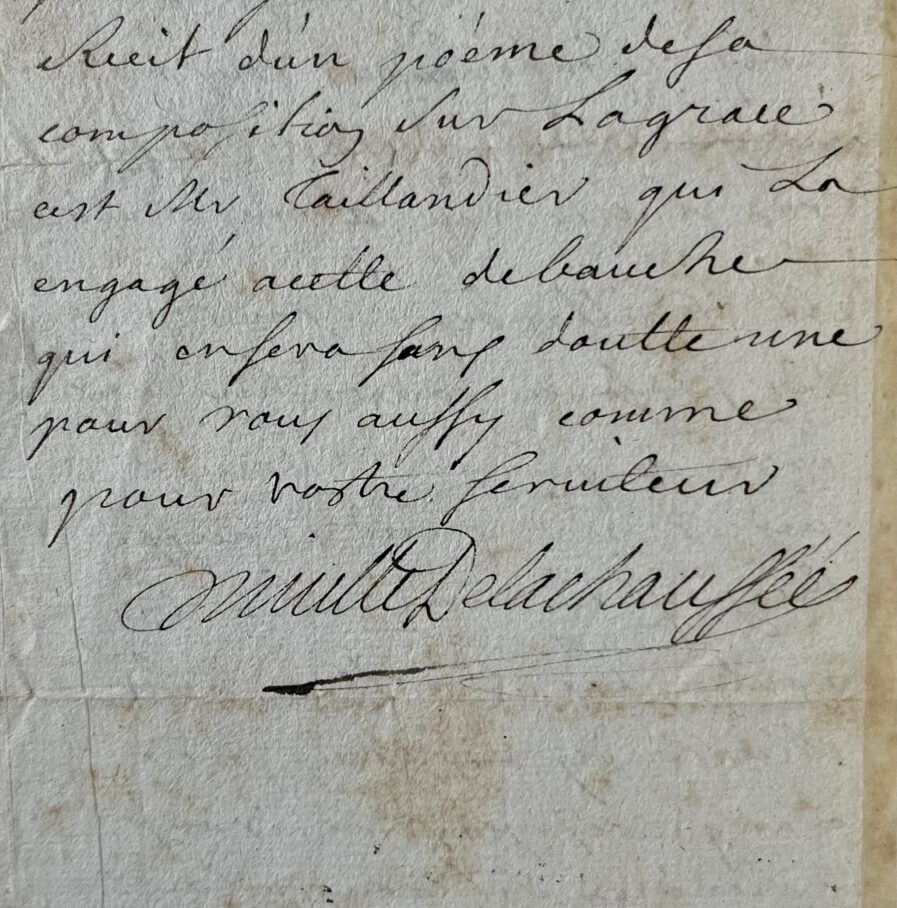 Recit d'un poéme desa
composition sur Lagrace
cest Mr Taillandier qui La
engagé acette debauche
qui ensera sans doutte une
pour vous aussy comme
pour vostre serviteur
Delachaussée